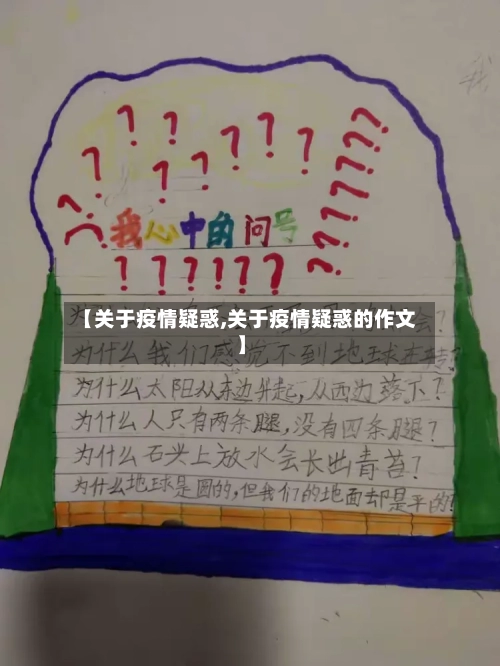 我
我心中的问号
【关于疫情疑惑,关于疫情疑惑的作文
】
为什么我们感觉不到地球在转?
为什么太阳从东边升起,从西边落下?
为什么人只有两条腿,没有四条腿?
为什么石头上放水会长出青苔?
为什么地球是圆的,但我们的地面却是平的?